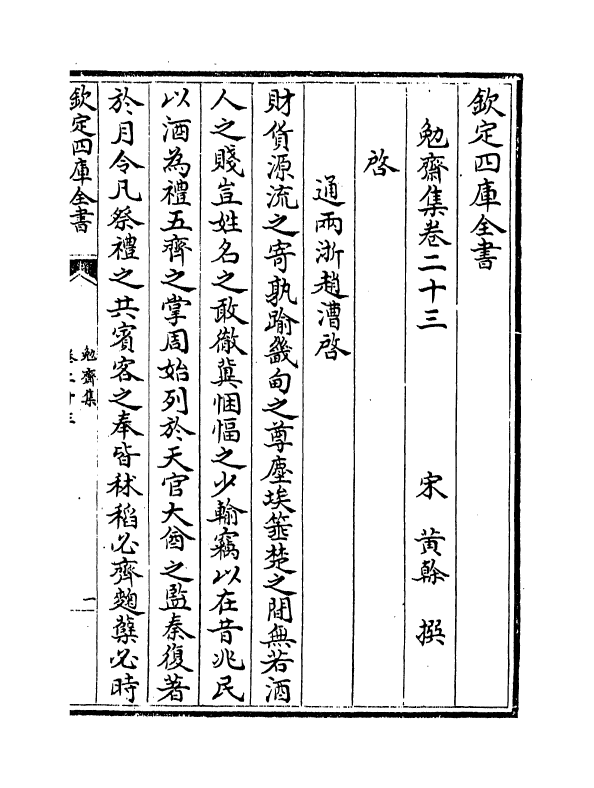 欽定四庫全書
勉齋集卷二十三
宋 黃榦 撰
啓
通兩浙趙漕啓
財貨源流之寄孰踰畿甸之尊塵埃箠楚之間無若酒
人之賤豈姓名之敢徹冀悃愊之少輸竊以在昔兆民
以酒為禮五齊之掌周始列於天官大酋之監秦復著
於月令凡祭禮之共賓客之奉皆秫稻必齊麴櫱必時
欽定四庫全書
勉齋集
卷二十三
一